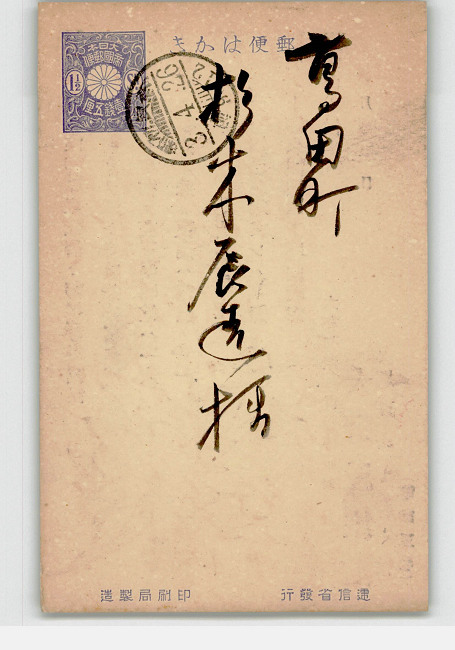 郵便はかき
大日本
帝國郵便
1½
壹錢五厘
3.4.26
田町
杉本辰
様
印刷局製造
逓信省發行